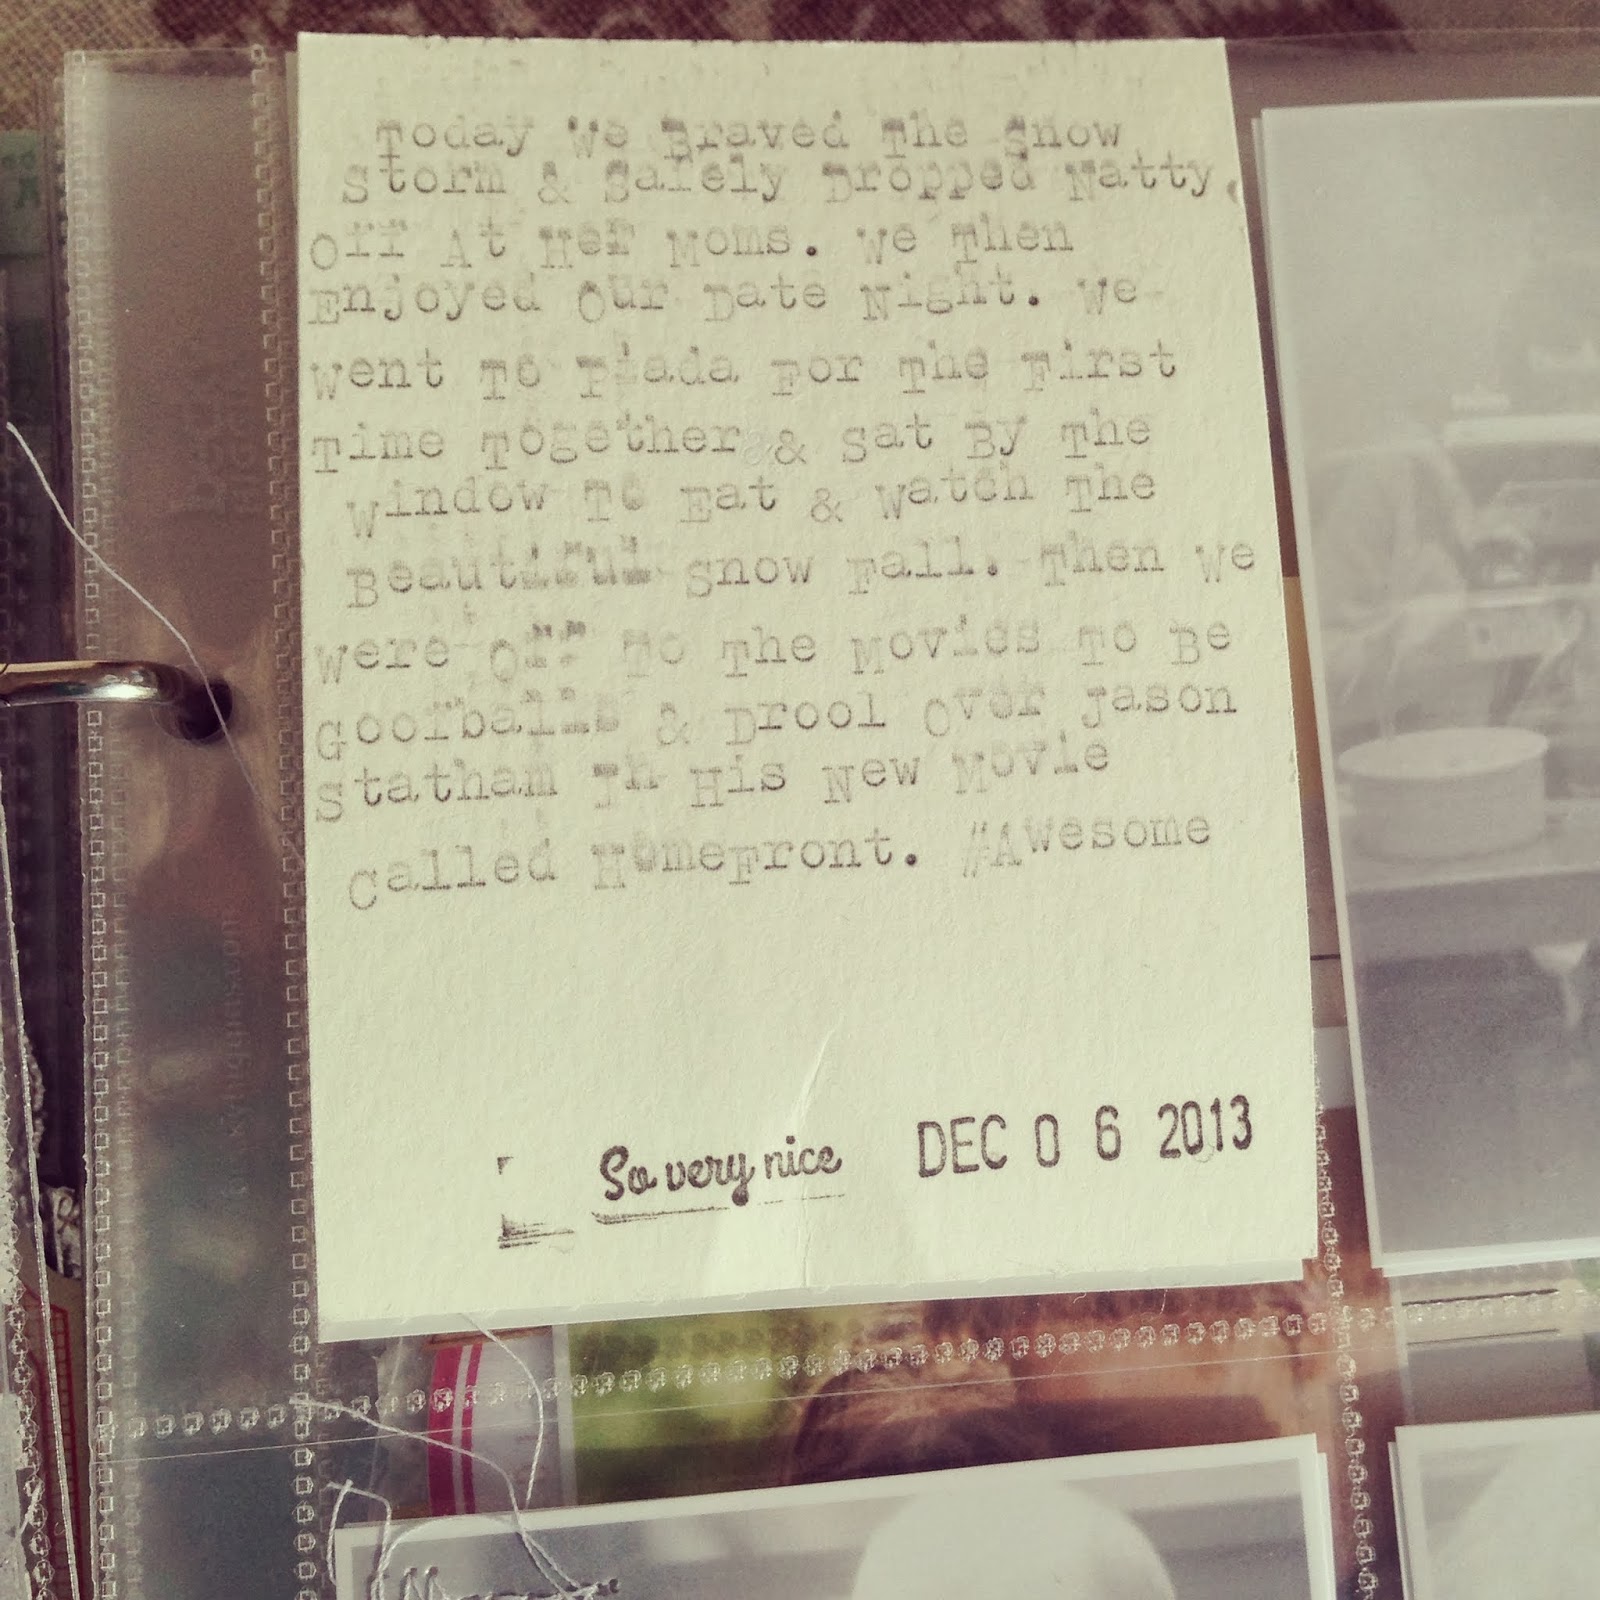 Today We Braved The Snow
Storm & Safely Dropped Natty
Off At Her Moms. We Then
Enjoyed Our Date Night. We
Went To Piada For The First
Time Together & Sat By The
Window To Eat & Watch The
Beautiful Snow Fall. Then We
Were Off To The Movies To Be
Goofballs & Drool Over Jason
Statham In His New Movie
Called HomeFront. #Awesome
So very nice DEC 06 2013